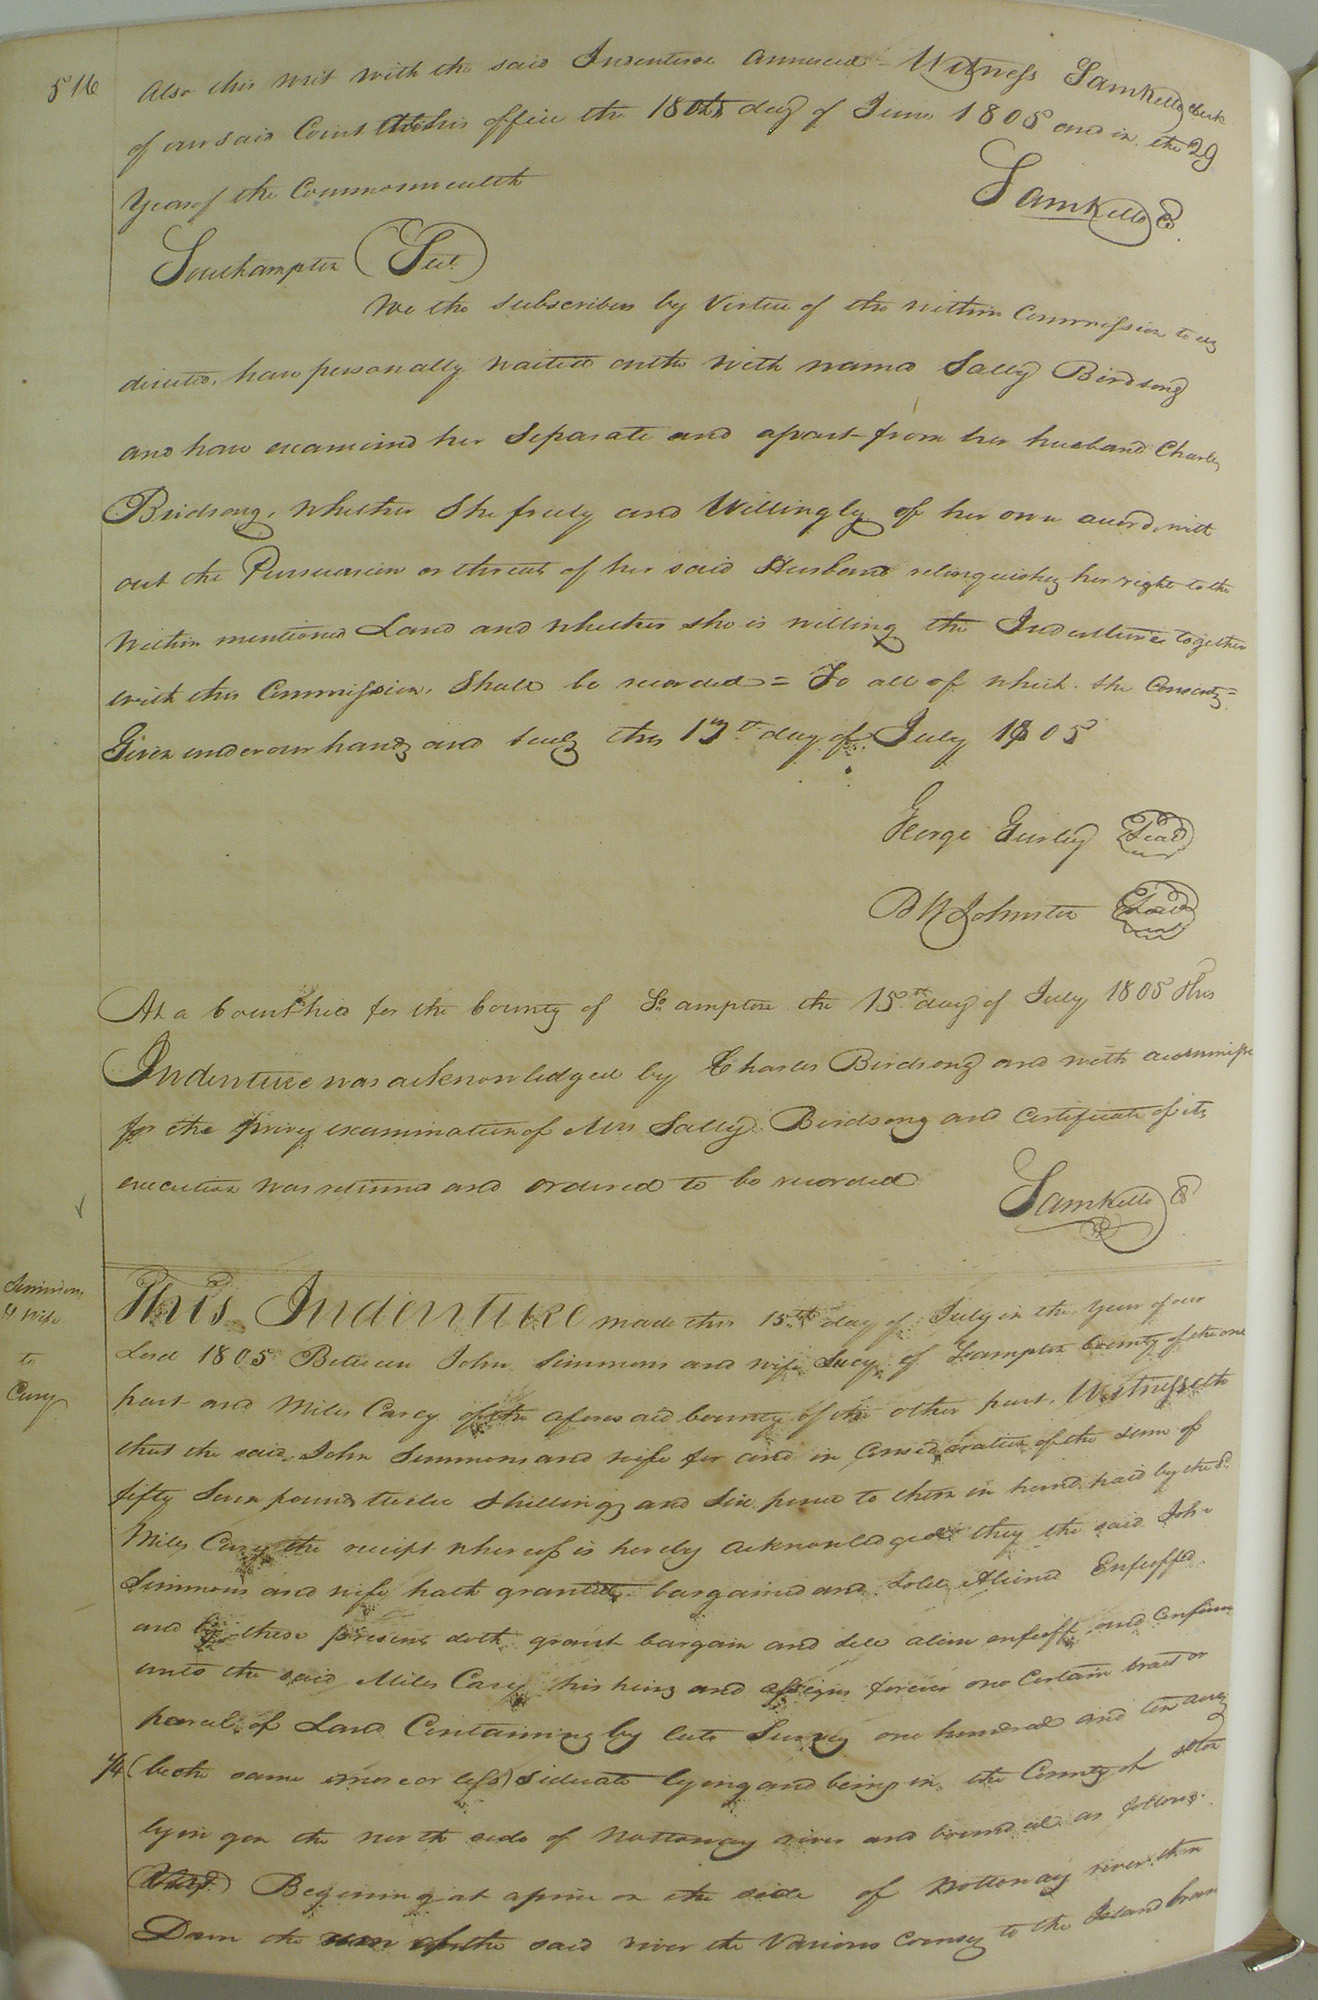 516
Also this writ with the said Indenture annexed - Witness Samkello Clerk
of our said Court At this office the 18th day of June 1805 and in the 29
Year of the Commonwealth
Samkello C
Southampton Sct.
We the subscribers by Virtue of the within Commission to us
directed, have personally waited on the with named Sally Birdsong
and have examined her Separate and apart from her husband Charles
Birdsong, whether She freely and Willingly of her own accord, with
out the Persuasion or threats of her said Husband relinquishes her right to the
Within mentioned Land and whether she is willing the Indenture together
with this Commission, Shall be recorded = To all of which she Consents =
Given under our hands and seals this 13th day of July 1805
George Gurley Seal
B W Johnston Seal
At a Court held for the County of So ampton the 15th day of July 1805 This
Indenture was acknowledged by Charles Birdsong and with a commission
for the privy examination of Mrs Sally Birdsong and Certificate of its
execution was returned and ordered to be recorded
Samkello C
Simmons
& Wife
to
Cary
This Indenture made this 15th day of July in the Year of our
Lord 1805 Between John Simmons and wife Lucy of Sampton County of the one
part and Miles Carey of the aforesaid County of the other part, Witnesseth
that the said John Simmons and wife for and in Consideration of the sum of
fifty Seven pounds twelve Shillings and Six pence to them in hand paid by the sd.
Miles Cary the receipt whereof is hereby acknowledged they the said John
Simmons and wife hath granted bargained and Sold Aliened Enfeoffed
and by these presents doth grant bargain and sell alien enfeoff and Confirm
unto the said Miles Cary his heirs and assigns forever one Certain tract or
parcel of Land Containing by late Survey one hundred and ten acres
1/4 (be the same more or less) Situate lying and being in the County of Soton
lying on the north side of Nottoway river and bounded as follows.
Begining at a pine on the side of Nottoway river then
Down the of the said river the Various Courses to the Island bran